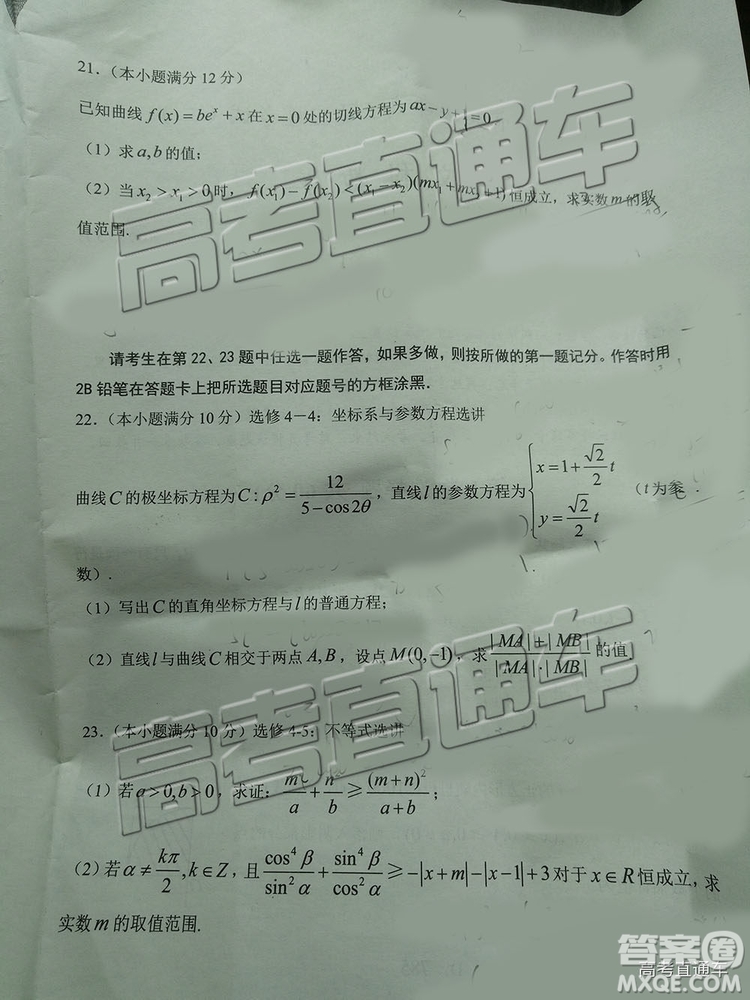 21．（本小题满分 12 分）
已知曲线 f(x)=be^x+x 在 x=0 处的切线方程为 ax-y+1=0
（1）求 a,b 的值；
（2）当 x₂>x₁>0 时，f(x₁)-f(x₂)<(x₁-x₂)(mx₁+mx₂+1) 恒成立，求实数 m 的取
值范围.
请考生在第 22、23 题中任选一题作答，如果多做，则按所做的第一题记分。作答时用
2B 铅笔在答题卡上把所选题目对应题号的方框涂黑.
22．（本小题满分 10 分）选修 4－4：坐标系与参数方程选讲
曲线 C 的极坐标方程为 C:ρ²=12/(5-cos2θ)，直线 l 的参数方程为 {x=1+(√2/2)t, y=(√2/2)t （t 为参
数）.
（1）写出 C 的直角坐标方程与 l 的普通方程；
（2）直线 l 与曲线 C 相交于两点 A,B，设点 M(0,-1)，求 (|MA|+|MB|)/(|MA|·|MB|) 的值
23.（本小题满分 10 分）选修 4-5：不等式选讲
（1）若 a>0,b>0，求证：m²/a+n²/b≥(m+n)²/(a+b)；
（2）若 α≠kπ/2,k∈Z，且 cos⁴β/sin²α+sin⁴β/cos²α≥-|x+m|-|x-1|+3 对于 x∈R 恒成立，求
实数 m 的取值范围.
高考直通车
高考直通车
答案圈
高考直通车
MXQE.COM